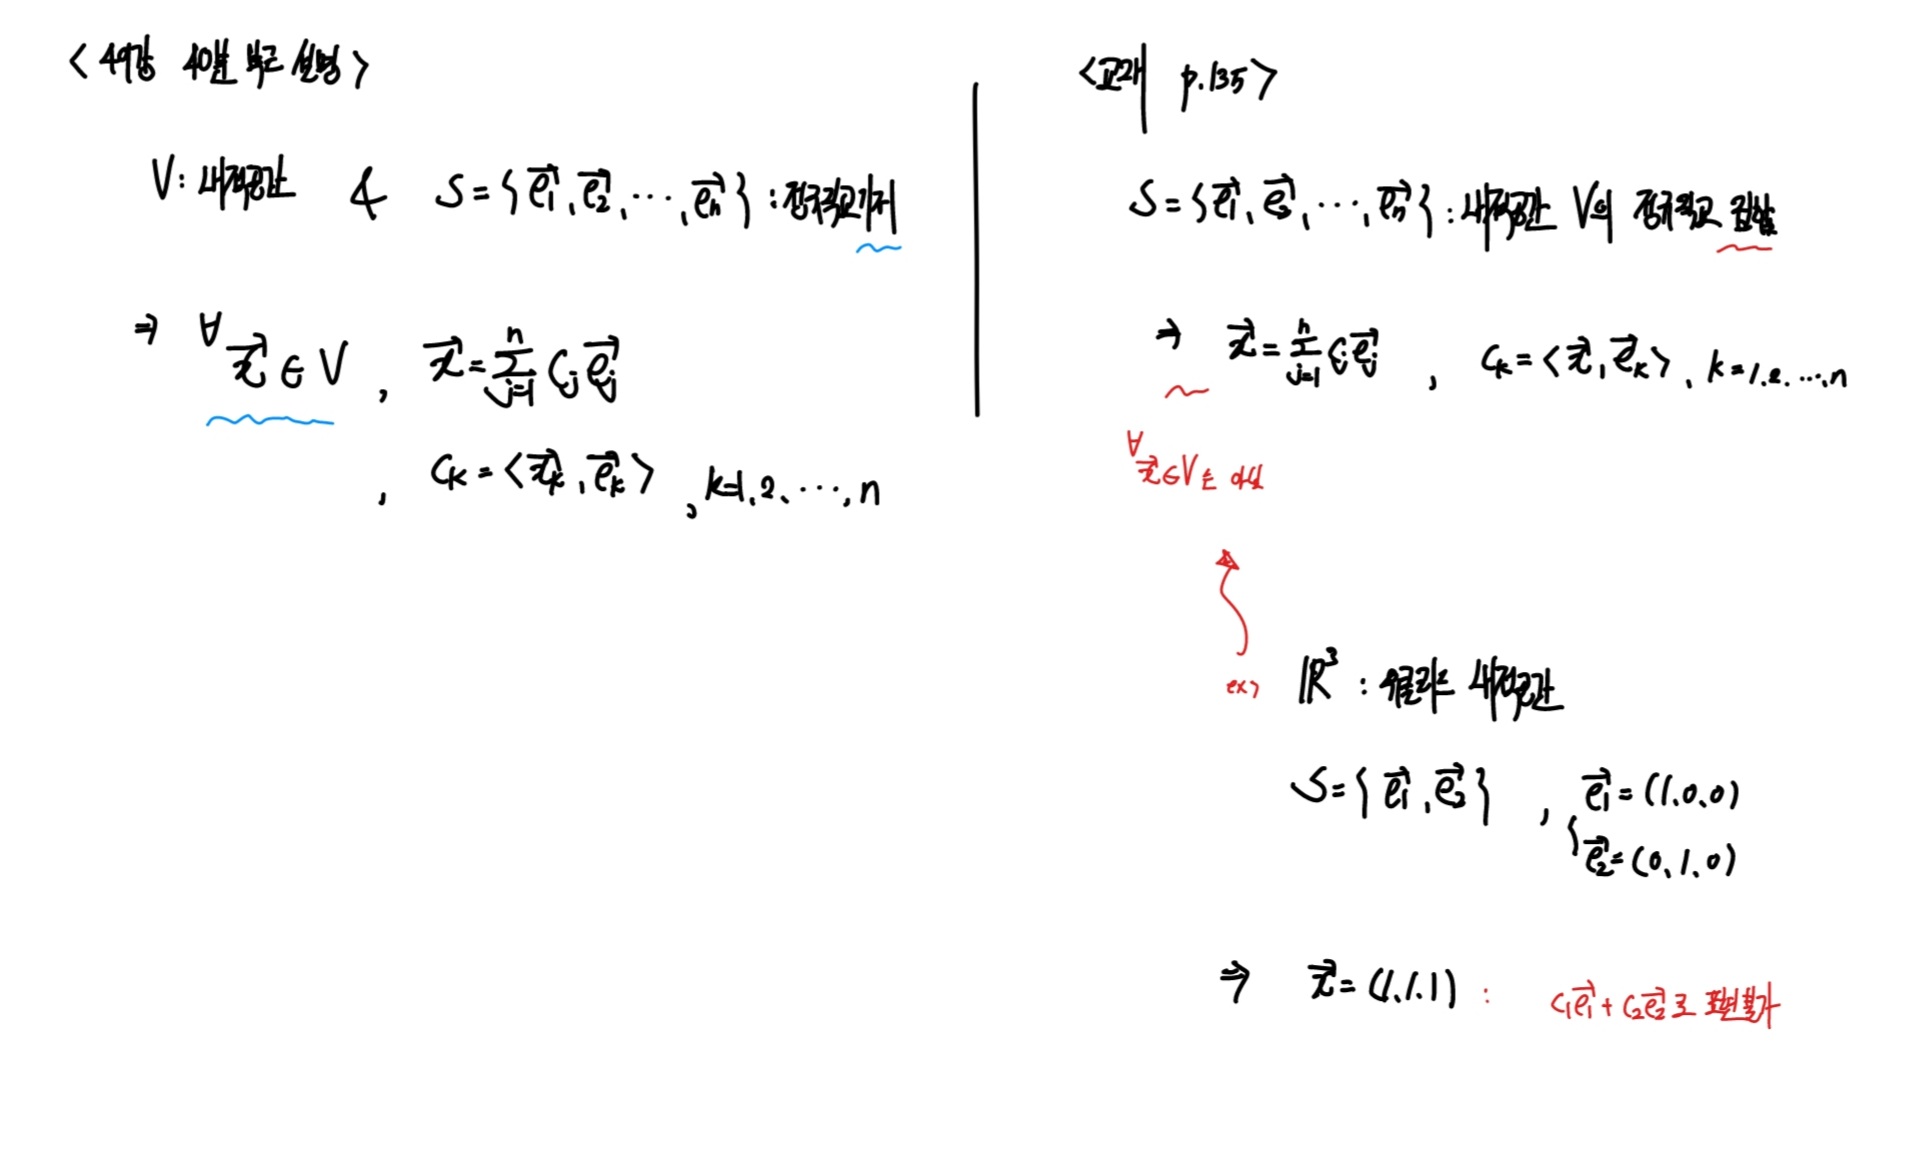 <49강 40분 부근 설명>
V: 내적공간 & S = {e₁⃗, e₂⃗, ⋯, eₙ⃗} : 정규직교기저
⇒ ∀x⃗ ∈ V , x⃗ = Σⁿⱼ₌₁ cⱼ eⱼ⃗
, cₖ = <xₖ⃗, eₖ⃗> , k=1, 2, ⋯, n
<교재 p.135>
S = {e₁⃗, e₂⃗, ⋯, eₙ⃗} : 내적공간 V의 정규직교 집합
⇒ x⃗ = Σⁿⱼ₌₁ cⱼ eⱼ⃗ , cₖ = <x⃗, eₖ⃗>, k=1, 2, ⋯, n
∀x⃗ ∈ V는 아님
ex> ℝ³ : 유클리드 내적공간
S = {e₁⃗, e₂⃗} , { e₁⃗ = (1, 0, 0)
e₂⃗ = (0, 1, 0)
⇒ x⃗ = (1, 1, 1) : c₁e₁⃗ + c₂e₂⃗로 표현불가